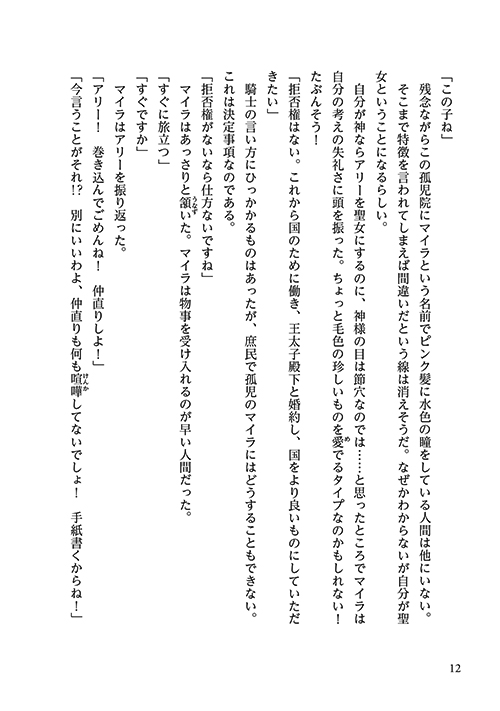 「この子ね」
残念ながらこの孤児院にマイラという名前でピンク髪に水色の瞳をしている人間は他にいない。
そこまで特徴を言われてしまえば間違いだという線は消えそうだ。なぜかわからないが自分が聖
女ということになるらしい。
自分が神ならアリーを聖女にするのに、神様の目は節穴なのでは……と思ったところでマイラは
自分の考えの失礼さに頭を振った。ちょっと毛色の珍しいものを愛でるタイプなのかもしれない！
たぶんそう！
「拒否権はない。これから国のために働き、王太子殿下と婚約し、国をより良いものにしていただ
きたい」
騎士の言い方にひっかかるものはあったが、庶民で孤児のマイラにはどうすることもできない。
これは決定事項なのである。
「拒否権がないなら仕方ないですね」
マイラはあっさりと頷いた。マイラは物事を受け入れるのが早い人間だった。
「すぐに旅立つ」
「すぐですか」
マイラはアリーを振り返った。
「アリー！　巻き込んでごめんね！　仲直りしよ！」
「今言うことがそれ!?　別にいいわよ、仲直りも何も喧嘩してないでしょ！　手紙書くからね！」
め
うなず
けんか
12